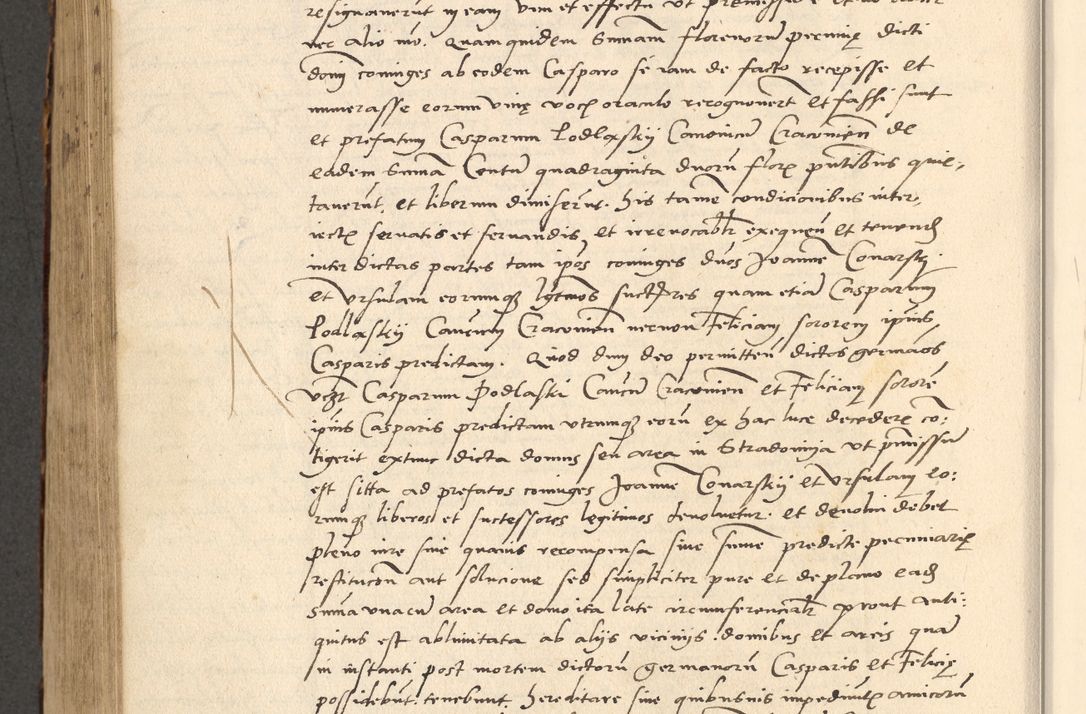 resignaverunt in eam vim et effectu ut premissum
nec alio mo. Quamquidem Summam florenorum pecunię dicti
domi coniuges ab eodem Casparo se iam de facto recepisse et
numerasse eorum vivę vocis oraculo recognoverunt et fassi sunt
et prefatum Casparum Podlaskij Canonicum Cracovien de
eadem Summa Centum quadraginta duorum flor pntibus quie-
taverunt, et liberum dimiserunt. his tamen condicionibus inter,
iectis servatis et servandis, et irrevocablr exequen et tenend
inter dictas partes tam ipos coniuges duos Joanne Conarskj
et Ursulam eorumque lgtmos successores quam etiam Casparum
Podlaskij Cancum Cracovien necnon Feliciam sororem ipius
Casparis predictam. Quod dum deo permitten dictos germanos
vczr Casparum Podlaski Cancum Cracovien et Feliciam sorore
ipius Casparis predictam utrumque eoru ex hac luce decedere con:
tigerit extunc dicta domus seu area in Stradomija ut pmissum
est sitta ad prefatos coniuges Joanne Conarskij et Ursulam eo:
rumque liberos et successores legitimos devolvetur. et devolvi debet
pleno iure sine quavis recompensa sive summe predicte pecuniarie
restitucon aut solucione sed simpliciter pure et de plano eadem
summa una cum area et domo ita late circumferencialr prout anti:
quitus est ablimitata ab alijs vicinijs domibus et areis quam
in instanti post mortem dictoru germanoru Casparis et Felicię
possidebunt tenebunt hereditare sine quibusvis impedimtis amicoru